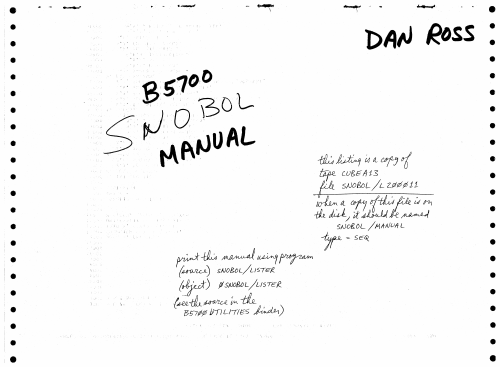 DAN ROSS
B5700
SNOBOL
MANUAL
this listing is a copy of
tape CUBEA13
file SNOBOL/L200011
when a copy of this file is on
the disk, it should be named
SNOBOL/MANUAL
type = SEQ
print this manual using program
(source) SNOBOL/LISTER
(object) ØSNOBOL/LISTER
(see the source in the
B5700 UTILITIES binder)